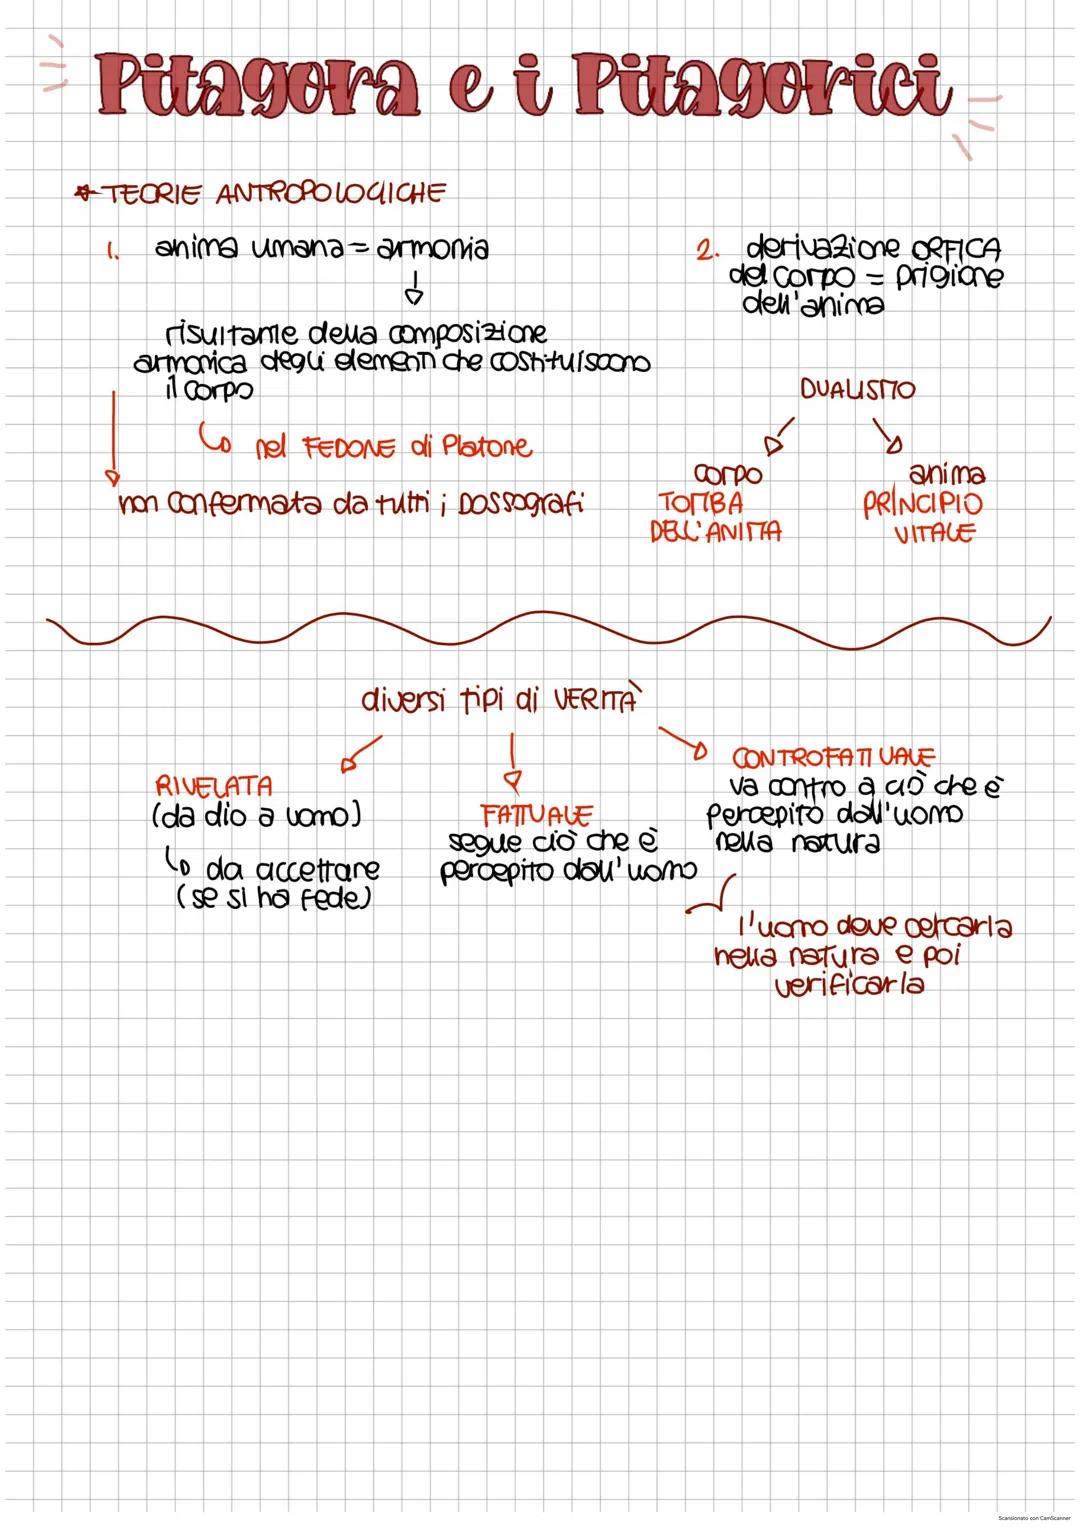 Pitagora e i Pitagorici
* TEORIE ANTROPOLOGICHE
1. anima umana = armonia
risultante della composizione
armonica degli elementi che costituiscono
il corpo
nel FEDONE di Platone
non confermata da tutti i Dossografi
2. derivazione ORFICA
del corpo = prigione
dell'anima
DUALISMO
corpo
TOMBA
DELL'ANIMA
anima
PRINCIPIO
VITALE
diversi tipi di VERITÀ
RIVELATA
(da dio a uomo)
da accettare
(se si ha fede)
FATTUALE
segue ciò che è
percepito dall'uomo
CONTROFATTUALE
va contro a ciò che è
percepito dall'uomo
nella natura
l'uomo deve cercarla
nella natura e poi
verificarla
Scansionato con CamScanner